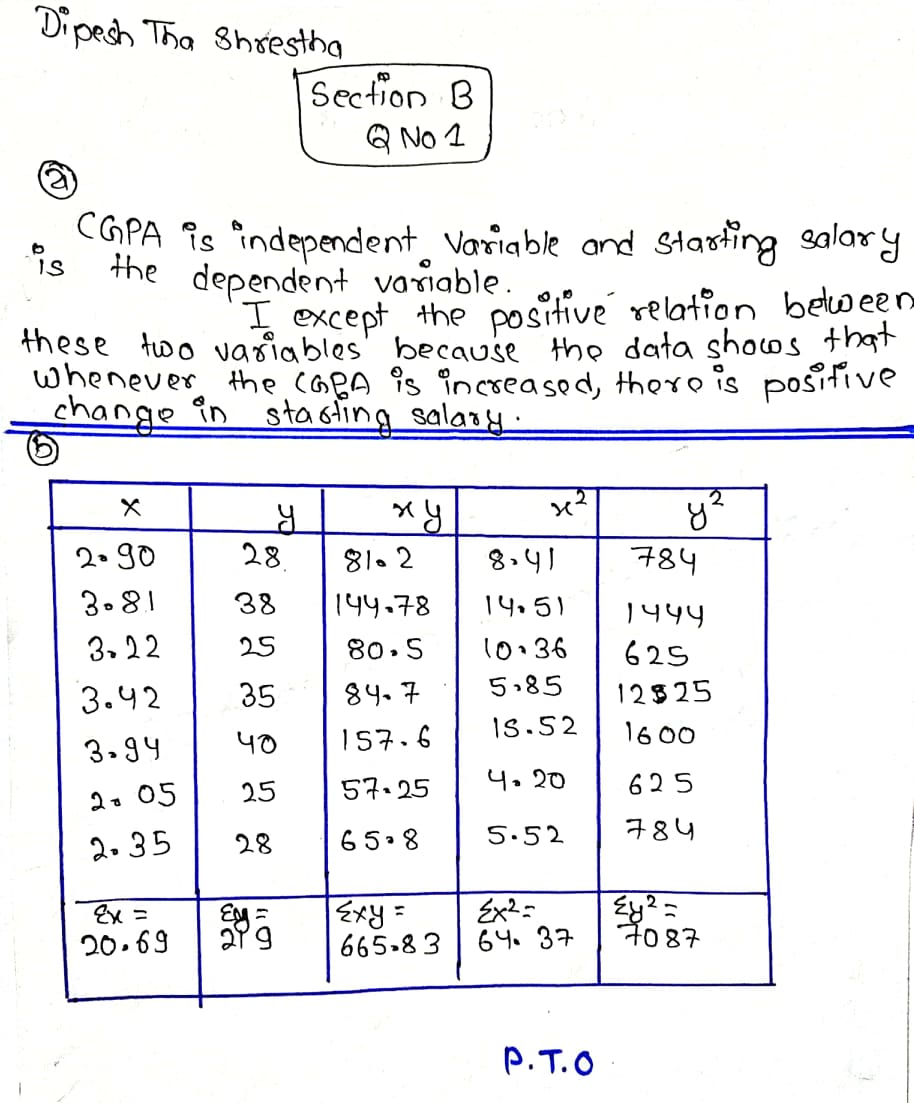 Dipesh Tha Shrestha
Section B
Q No 1
a
CGPA is independent variable and starting salary
is the dependent variable.
I except the positive relation between
these two variables because the data shows that
whenever the CGPA is increased, there is positive
change in starting salary.
b
x y xy x² y²
2.90 28 81.2 8.41 784
3.81 38 144.78 14.51 1444
3.22 25 80.5 10.36 625
3.42 35 84.7 5.85 1225
3.94 40 157.6 15.52 1600
2.05 25 57.25 4.20 625
2.35 28 65.8 5.52 784
Σx = Σy = Σxy = Σx² = Σy² =
20.69 219 665.83 64.37 7087
P.T.O